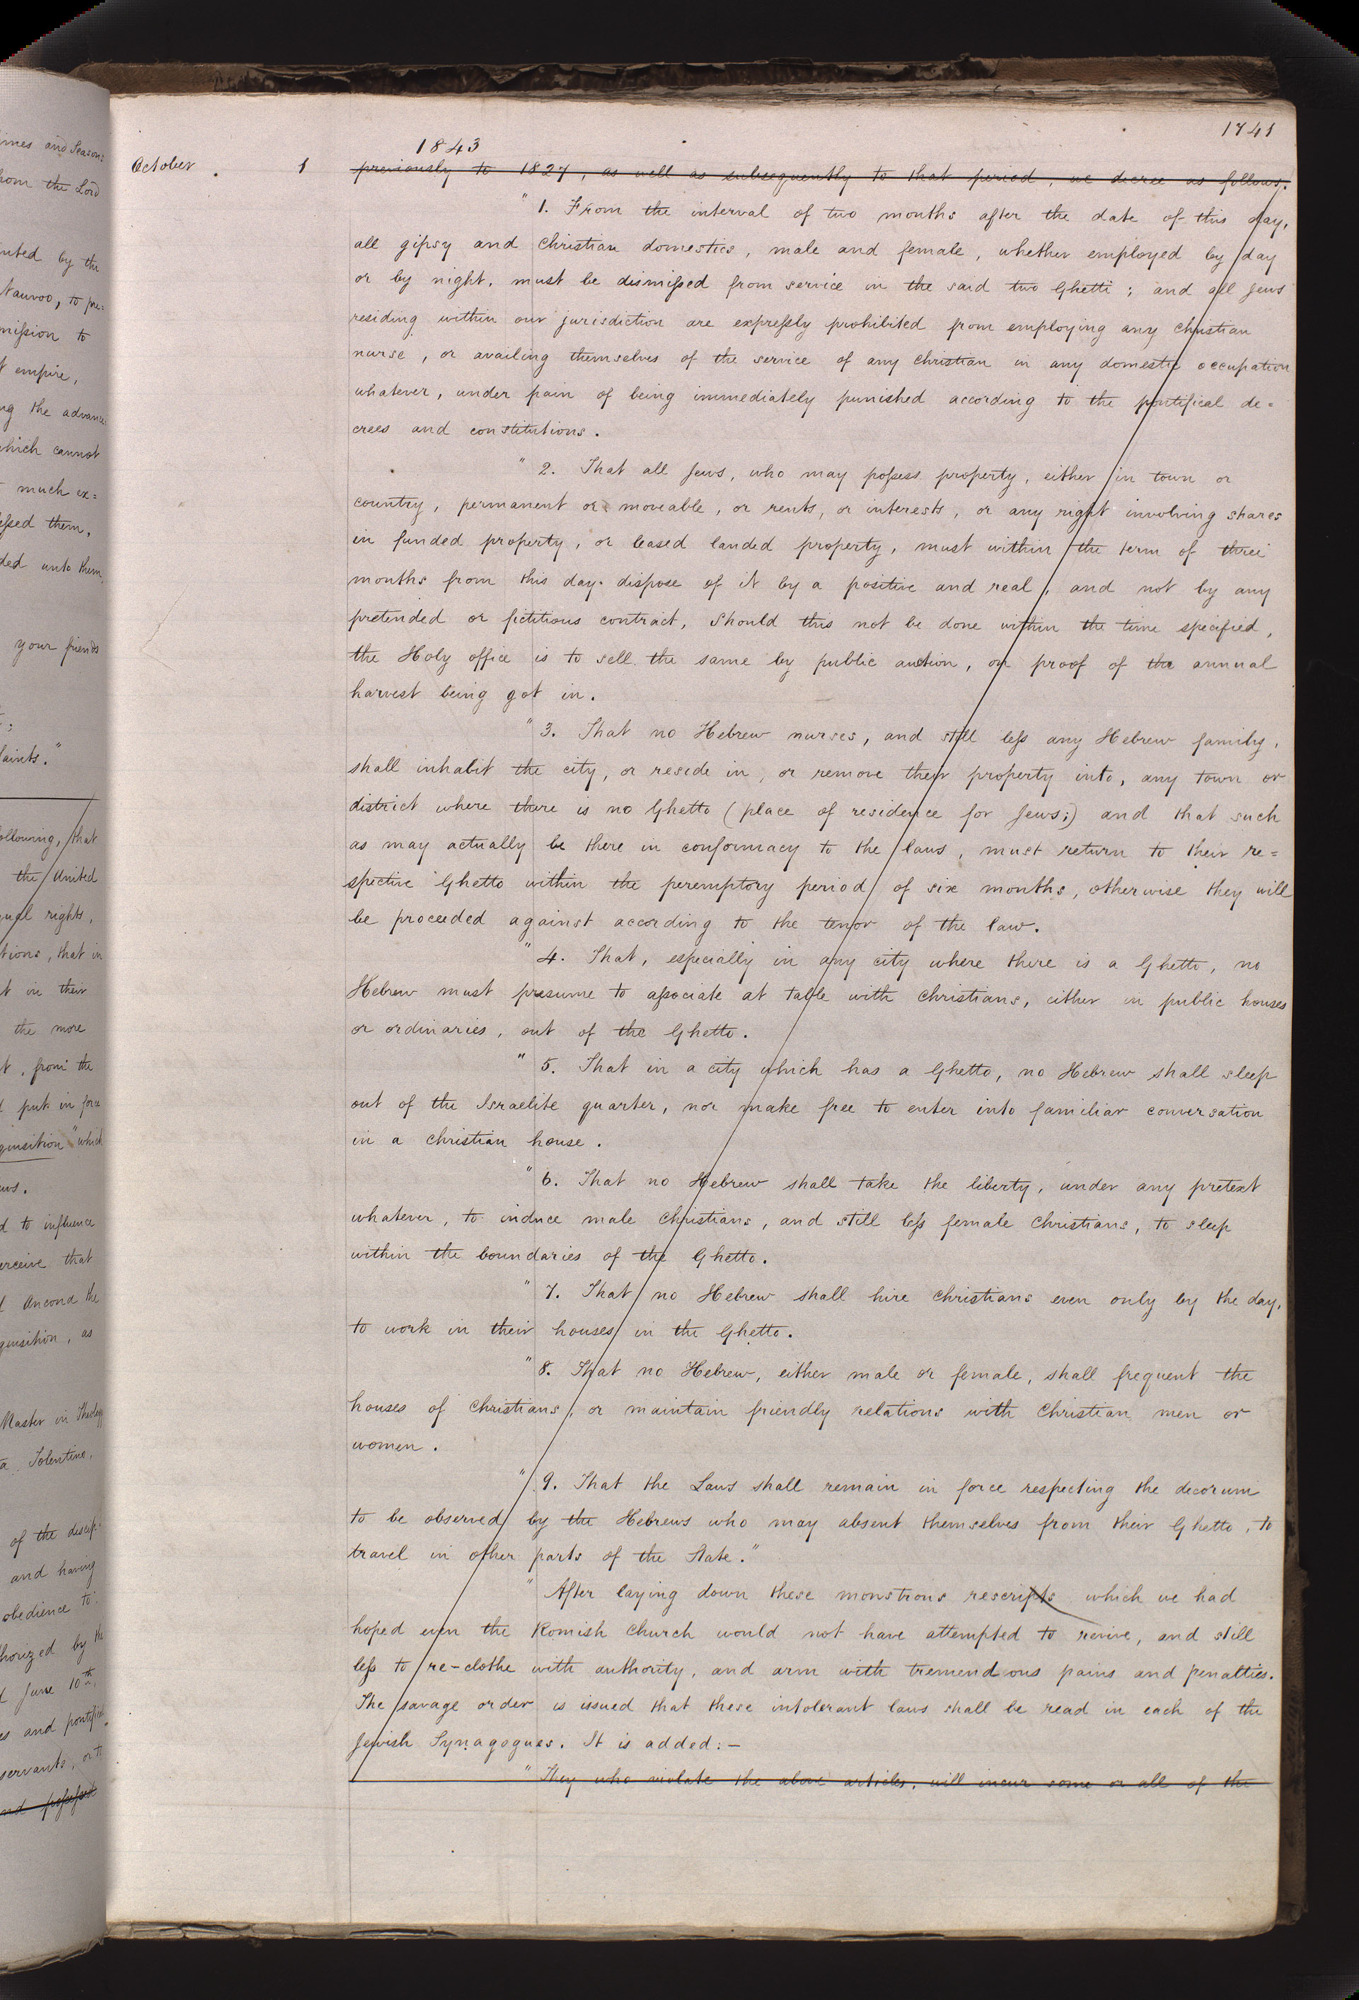 1741
1843
October 1 previously to 1827, as well as subsequently to that period, we decree as follows.
" 1. From the interval of two months after the date of this day,
all gipsy and Christian domestics, male and female, whether employed by day
or by night, must be dismissed from service in the said two Ghetti; and all Jews
residing within our jurisdiction are expressly prohibited from employing any Christian
nurse, or availing themselves of the service of any Christian in any domestic occupation
whatever, under pain of being immediately punished according to the pontifical de=
crees and constitutions.
" 2. That all Jews, who may possess property, either in town or
country, permanent or moveable, or rents, or interests, or any right involving shares
in funded property, or leased landed property, must within the term of three
months from this day dispose of it by a positive and real, and not by any
pretended or fictitious contract, Should this not be done within the time specified,
the Holy office is to sell the same by public auction, on proof of the annual
harvest being got in.
" 3. That no Hebrew nurses, and still less any Hebrew family,
shall inhabit the city, or reside in, or remove their property into, any town or
district where there is no Ghetto (place of residence for Jews;) and that such
as may actually be there in conformacy to the laws, must return to their re=
spective Ghetto within the peremptory period of six months, otherwise they will
be proceeded against according to the tenor of the law.
" 4. That, especially in any city where there is a Ghetto, no
Hebrew must presume to associate at table with Christians, either in public houses
or ordinaries, out of the Ghetto.
" 5. That in a city which has a Ghetto, no Hebrew shall sleep
out of the Israelite quarter, nor make free to enter into familiar conversation
in a christian house.
" 6. That no Hebrew shall take the liberty, under any pretext
whatever, to induce male Christians, and still less female Christians, to sleep
within the boundaries of the Ghetto.
" 7. That no Hebrew shall hire Christians even only by the day,
to work in their houses in the Ghetto.
" 8. That no Hebrew, either male or female, shall frequent the
houses of Christians, or maintain friendly relations with Christian men or
women.
" 9. That the Laws shall remain in force respecting the decorum
to be observed by the Hebrews who may absent themselves from their Ghetto, to
travel in other parts of the State."
" After laying down these monstrous rescripts which we had
hoped even the Romish Church would not have attempted to revive, and still
less to re-clothe with authority, and arm with tremendous pains and penalties.
The savage order is issued that these intolerant laws shall be read in each of the
Jewish Synagogues. It is added:—
" They who violate the above articles, will incur some or all of the
imes and Seasons
from the Lord
nted by the
Nauvoo, to pre=
mission to
empire,
ng the advance
which cannot
much ex=
essed them,
ded unto them
your friends
Saints."
following, that
the United
qual rights,
tions, that in
t in their
the more
t, from the
put in force
quisition "which
ews.
d to influence
erceive that
Ancona the
quisition, as
Master in Theology
Tolentino,
of the discip
and having
obedience to
horized by the
June 10th,
es and pontifical
servants, or
nd possessed